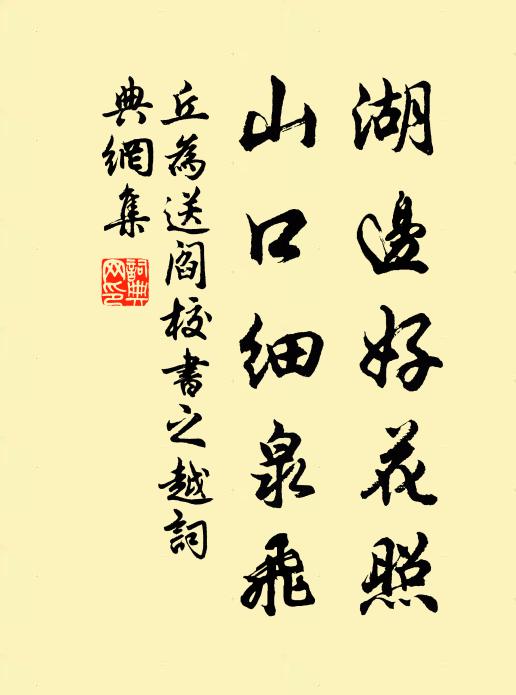 湖邊好花照
山口細泉飛
丘為送閻校書之越詞
典網集
詞典
网印